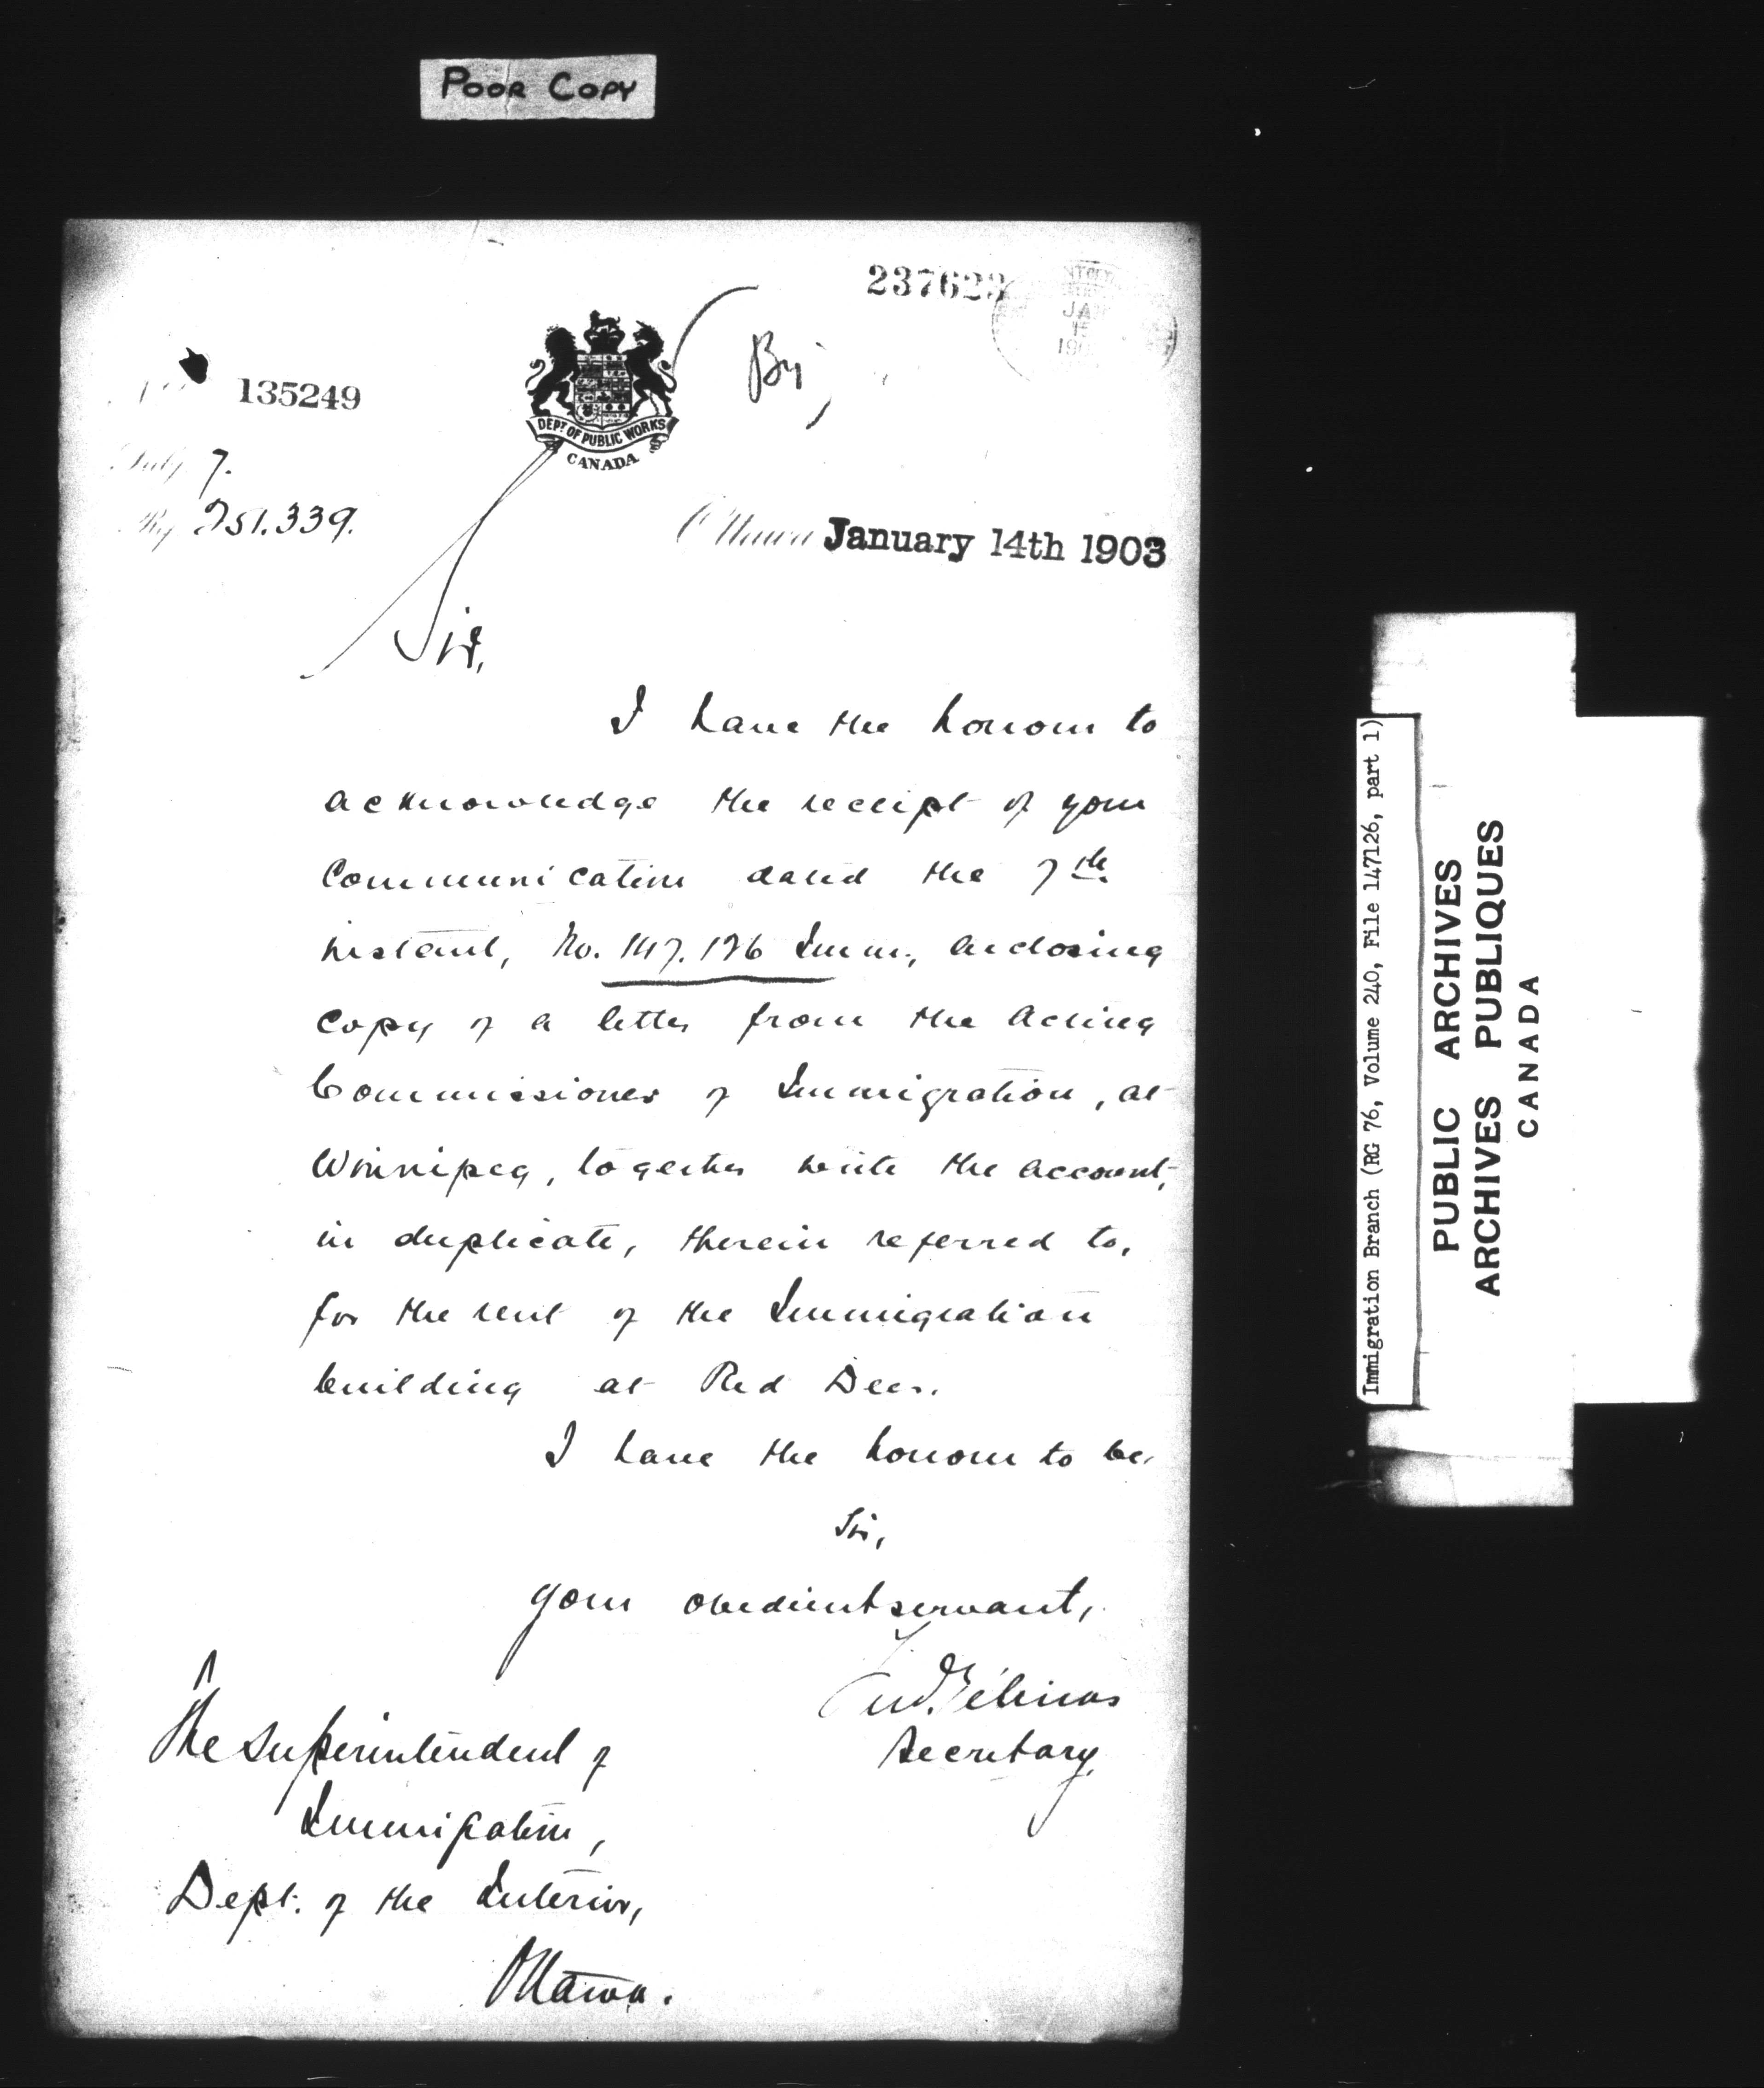 POOR COPY
237623
JA
15
190
By
No. 135249
DEPT. OF PUBLIC WORKS
CANADA
Subj. 7.
Ref. 251.339.
Ottawa January 14th 1903
Sir,
I have the honour to
acknowledge the receipt of your
communication dated the 7th
instant, No. 147.126 Imm., enclosing
copy of a letter from the Acting
Commissioner of Immigration, at
Winnipeg, together with the account,
in duplicate, therein referred to,
for the rent of the Immigration
building at Red Deer.
I have the honour to be,
Sir,
Your obedient servant,
Fred. Gélinas
Secretary.
The Superintendent of
Immigration,
Dept. of the Interior,
Ottawa.
Immigration Branch (RG 76, Volume 240, File 147126, part 1)
PUBLIC ARCHIVES
ARCHIVES PUBLIQUES
CANADA